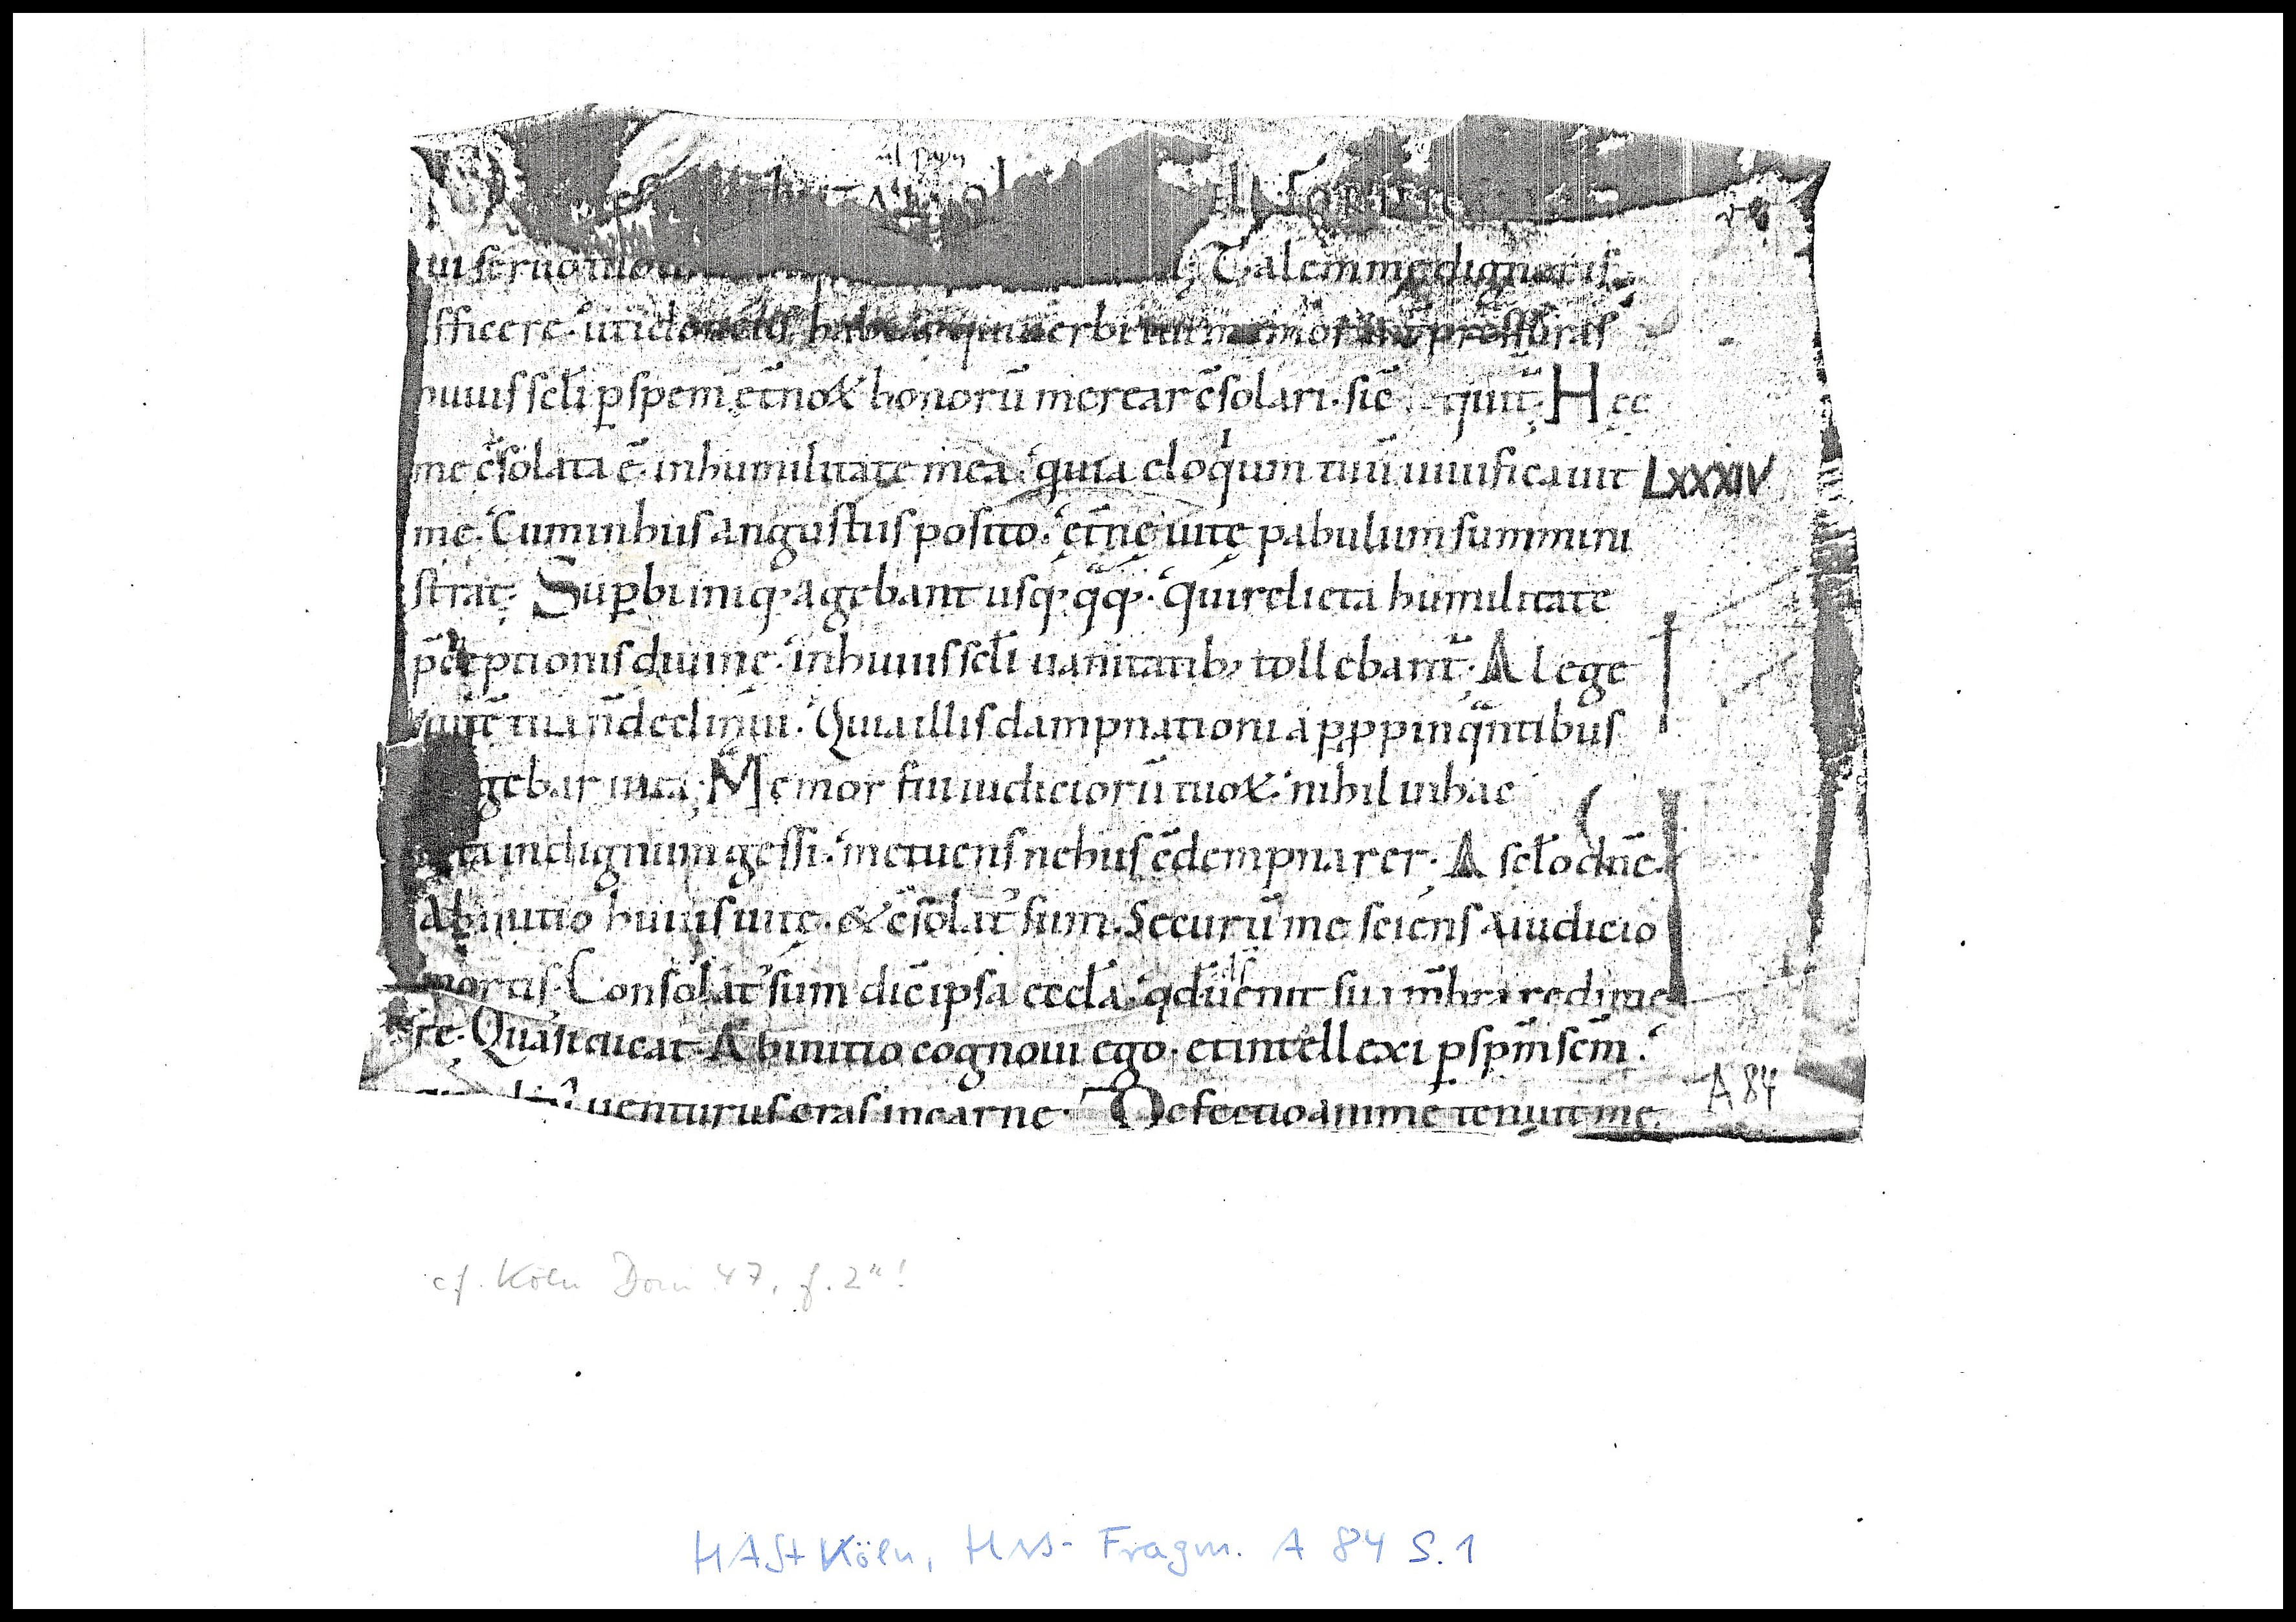 ui seruo tuo Talem me dignatus
fficere. uti do habe uerbi tui memor pressuras
huius scłi ꝑ spem et̄noꝝ bonorū merear c̄solari. sic̄ sequit̄. Hec
me c̄solata ē. in humilitate mea. quia eloqium tuū uiuificauit LXXXIV
me. Cum in his angustiis posito. et̄nę uitę pabulum summini
strat. Suꝑbi iniq; agebant usq; q̄q;. qui relicta humilitate
p̄ceptionis diuinę. in huius scłi uanitatib; tollebant̄. A lege
aut̄ tua n̄ declinaui. Quia illis dampnationi aꝓpinq̄ntibus
gebar uita. Memor fui iudiciorū tuoꝝ. nihil in hac
uita indignum gessi. metuens ne his c̄dempnarer. A scło dn̄e.
Ab initio huius uitę. & c̄solat' sum. Securū me sciens a iudicio
mortis. Consolat' sum dic̄ ipsa eccła. qd uenit sua mbra redime
re. Quasi dicat. Ab initio cognoui ego. et intellexi ꝑ spm̄ scm̄.
uenturus eras in carne. Defectio animę tenuit me.
A 84
cf. Köln Dom 47, f. 2v!
HAStKöln, Hss-Fragm. A 84 S. 1